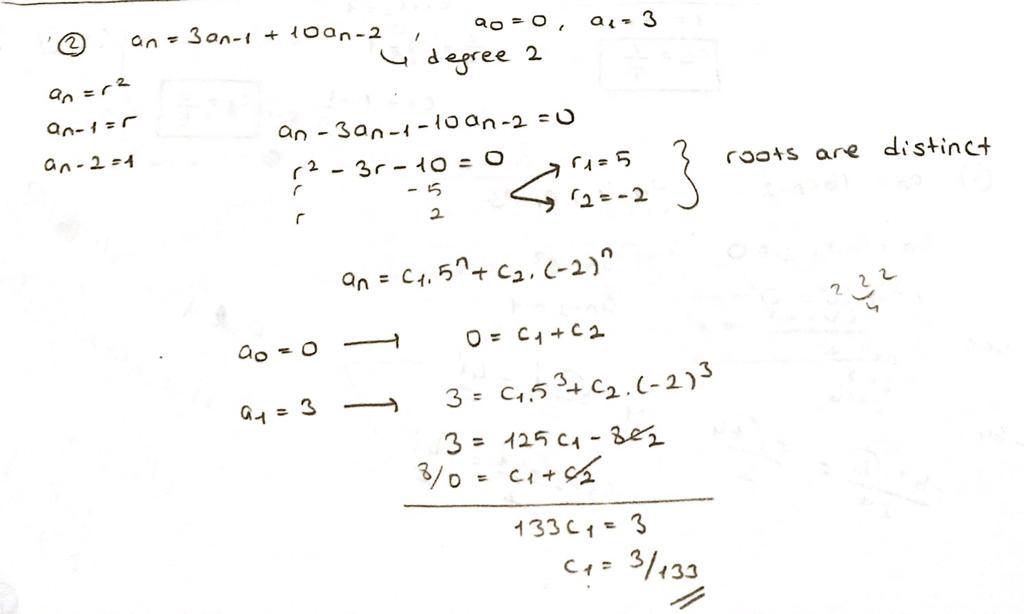 ② an = 3an-1 + 10an-2 , a0 = 0, a1 = 3
↳ degree 2
an = r²
an-1 = r
an-2 = 1
an - 3an-1 - 10an-2 = 0
r² - 3r - 10 = 0 r1 = 5 } roots are distinct
r -5 r2 = -2
r 2
an = c1.5ⁿ + c2.(-2)ⁿ
2 2 2
4
a0 = 0 → 0 = c1 + c2
a1 = 3 → 3 = c1.5³ + c2.(-2)³
3 = 125c1 - 8c2
8/0 = c1 + c2
133c1 = 3
c1 = 3/133